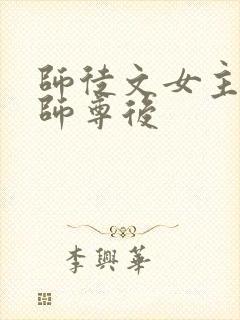 師徒文女主
師尊後
李興華